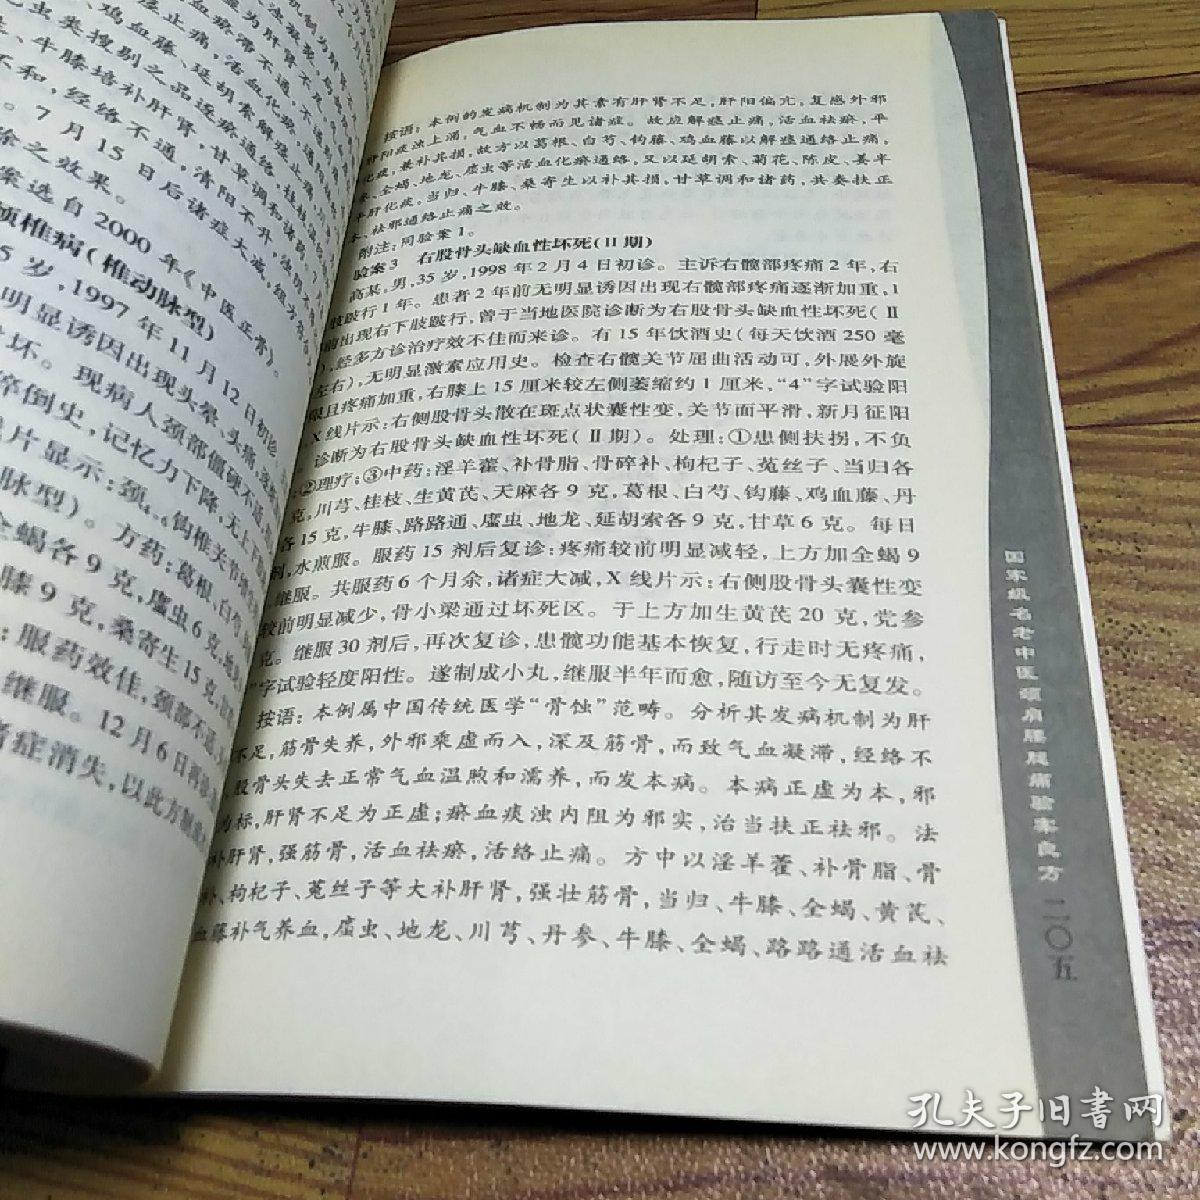 止痛，活血化瘀，
鸡血藤、延胡索解痉止痛，
虫类搜剔之品逐瘀通络，桂枝
牛膝培补肝肾，甘草调和诸药
不和，经络不通，清阳不升，浊阴不
7月15日后诸症大减，
除之效果。
案选自2000年《中医正骨》。
颈椎病（椎动脉型）
5岁，1997年11月12日初诊。
明显诱因出现头晕、头痛，
坏。现病人颈部僵硬不适，
倒史，记忆力下降，无上下
片显示：颈、钩椎关节增
脉型）。方药：葛根、白芍、
全蝎各9克，䗪虫6克，地
膝9克，桑寄生15克，
服药效佳，颈部不适
继服。12月6日再诊
诸症消失，以此方制
按语：本例的发病机制为其素有肝肾不足，肝阳偏亢，复感外邪
阳痰浊上涌，气血不畅而见诸症。故应解痉止痛，活血祛瘀，平
化痰，兼补其损，故方以葛根、白芍、钩藤、鸡血藤以解痉通络止痛，
全蝎、地龙、䗪虫等活血化瘀通络，又以延胡索、菊花、陈皮、姜半
平肝化痰。当归、牛膝、桑寄生以补其损，甘草调和诸药，共奏扶正
祛邪通络止痛之效。
附注：同验案1。
验案3 右股骨头缺血性坏死（Ⅱ期）
高某，男，35岁，1998年2月4日初诊。主诉右髋部疼痛2年，右
肢跛行1年。患者2年前无明显诱因出现右髋部疼痛逐渐加重，1
前出现右下肢跛行，曾于当地医院诊断为右股骨头缺血性坏死（Ⅱ
，经多方诊治疗效不佳而来诊。有15年饮酒史（每天饮酒250毫
左右），无明显激素应用史。检查右髋关节屈曲活动可，外展外旋
限且疼痛加重，右膝上15厘米较左侧萎缩约1厘米，“4”字试验阳
X线片示：右侧股骨头散在斑点状囊性变，关节面平滑，新月征阳
诊断为右股骨头缺血性坏死（Ⅱ期）。处理：①患侧扶拐，不负
；②理疗；③中药：淫羊藿、补骨脂、骨碎补、枸杞子、菟丝子、当归各
克，川芎、桂枝、生黄芪、天麻各9克，葛根、白芍、钩藤、鸡血藤、丹
各15克，牛膝、路路通、䗪虫、地龙、延胡索各9克，甘草6克。每日
剂，水煎服。服药15剂后复诊：疼痛较前明显减轻，上方加全蝎9
继服。共服药6个月余，诸症大减，X线片示：右侧股骨头囊性变
较前明显减少，骨小梁通过坏死区。于上方加生黄芪20克，党参
克。继服30剂后，再次复诊，患髋功能基本恢复，行走时无疼痛，
”字试验轻度阳性。遂制成小丸，继服半年而愈，随访至今无复发。
按语：本例属中国传统医学“骨蚀”范畴。分析其发病机制为肝
不足，筋骨失养，外邪乘虚而入，深及筋骨，而致气血凝滞，经络不
，股骨头失去正常气血温煦和濡养，而发本病。本病正虚为本，邪
为标，肝肾不足为正虚；瘀血痰浊内阻为邪实，治当扶正祛邪。法
补肝肾，强筋骨，活血祛瘀，活络止痛。方中以淫羊藿、补骨脂、骨
补、枸杞子、菟丝子等大补肝肾，强壮筋骨，当归、牛膝、全蝎、黄芪、
血藤补气养血，䗪虫、地龙、川芎、丹参、牛膝、全蝎、路路通活血祛
国家级名老中医颈肩腰腿痛验案良方 二〇五
孔夫子旧书网
www.kongfz.com